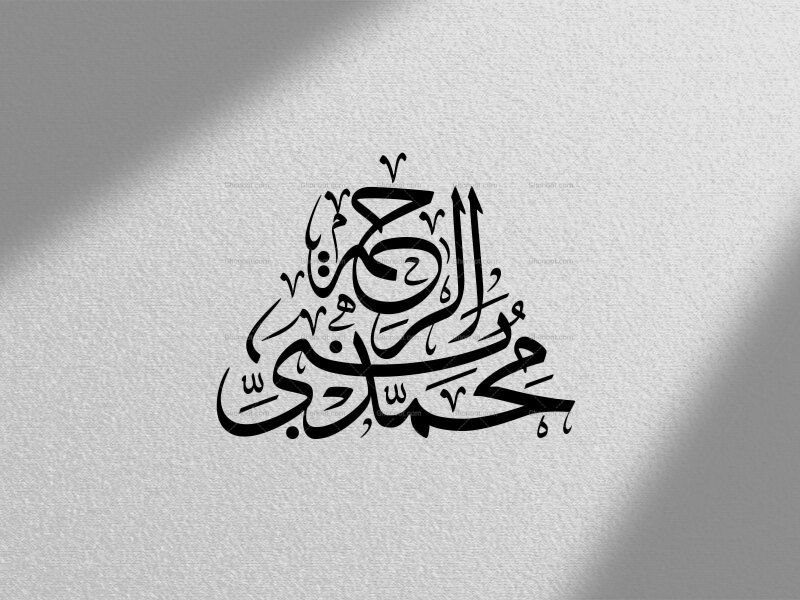 محمّد نبيّ
الرحمة